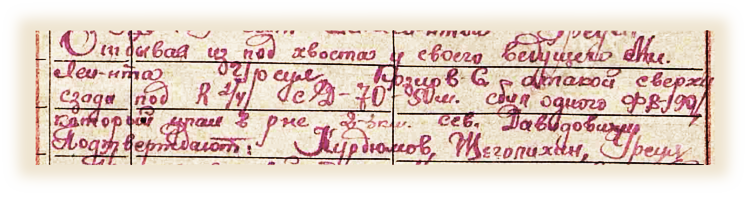 Отбывая из под хвоста у своего ведущего Мл.
Лей-нта Урсул, Козлов С. атакой сверху
сзади под R 2/4 с Д-70 50м. сбил одного ФВ-190/
который упал в р-не 2-3 км. сев. Давидовичи
Подтверждают: Курдюмов, Щеголихин, Урсул